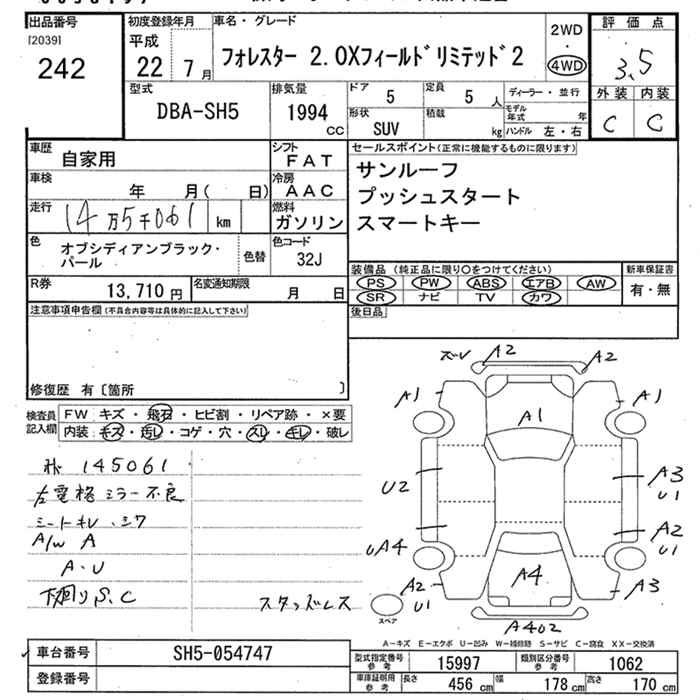 出品番号
[2039]
242
初度登録年月
平成
22 7月
車名・グレード
フォレスター 2.0Xフィールドリミテッド2
2WD
・
4WD
評価点
3.5
外装 内装
C C
型式
DBA-SH5
排気量
1994
cc
ドア
5
定員
5 人
形状
SUV
積載
kg
ディーラー・並行
モデル年式 年
ハンドル 左・右
車歴
自家用
シフト
FAT
車検
年 月( 日)
冷房
AAC
走行
14万5千061 km
燃料
ガソリン
色
オブシディアンブラック・パール
色替
色コード
32J
R券
13,710円
名変通知期限
月 日
セールスポイント(正常に機能するものに限ります)
サンルーフ
プッシュスタート
スマートキー
装備品(純正品に限り○をつけてください)
PS PW ABS エアB AW
SR ナビ TV カワ
新車保証書
有・無
後日品
注意事項申告欄(不具合内容等は具体的に記入して下さい)
修復歴 有〔箇所 〕
検査員記入欄
FW キズ・飛石・ヒビ割・リペア跡・×要
内装:キズ・汚レ・コゲ・穴・スレ・キレ・破レ
145061
左電格ミラー不良
シートキレ・シワ
A/W A
A・U
下廻りS.C
スタッドレス
ズレ
A2
A2
A1
A1
A1
U2
A3
U1
UA4
A2
U1
A2
U1
A4
A3
A4U2
スペア
A-キズ E-エクボ U-凹み W-補修跡 S-サビ C-腐食 XX-交換済
車台番号
SH5-054747
登録番号
型式指定番号
参考
15997
類別区分番号
参考
1062
車庫証明用
参考
長さ
456 cm
幅
178 cm
高さ
170 cm